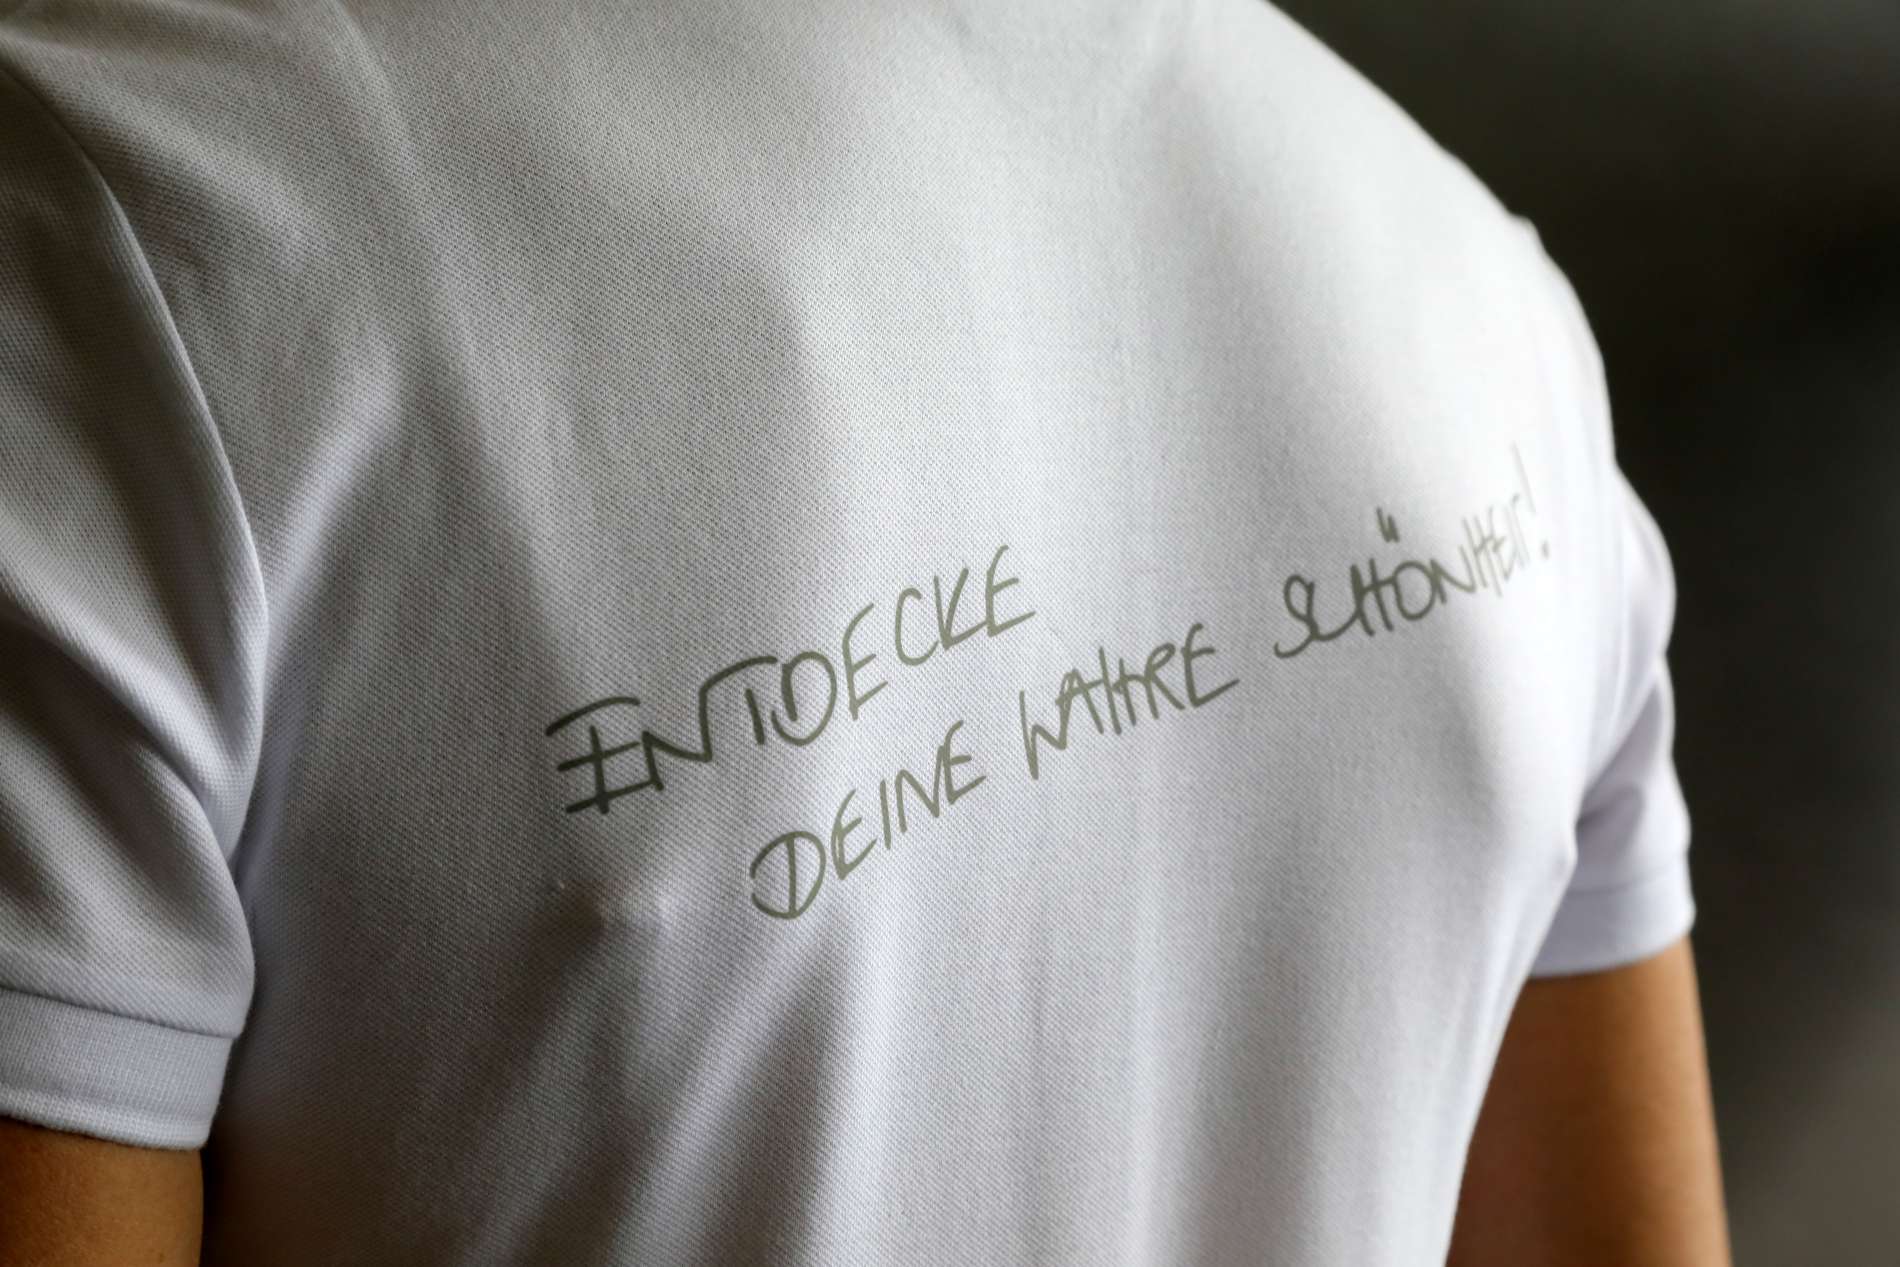 ENTDECKE
DEINE WAHRE SCHÖNHEIT!